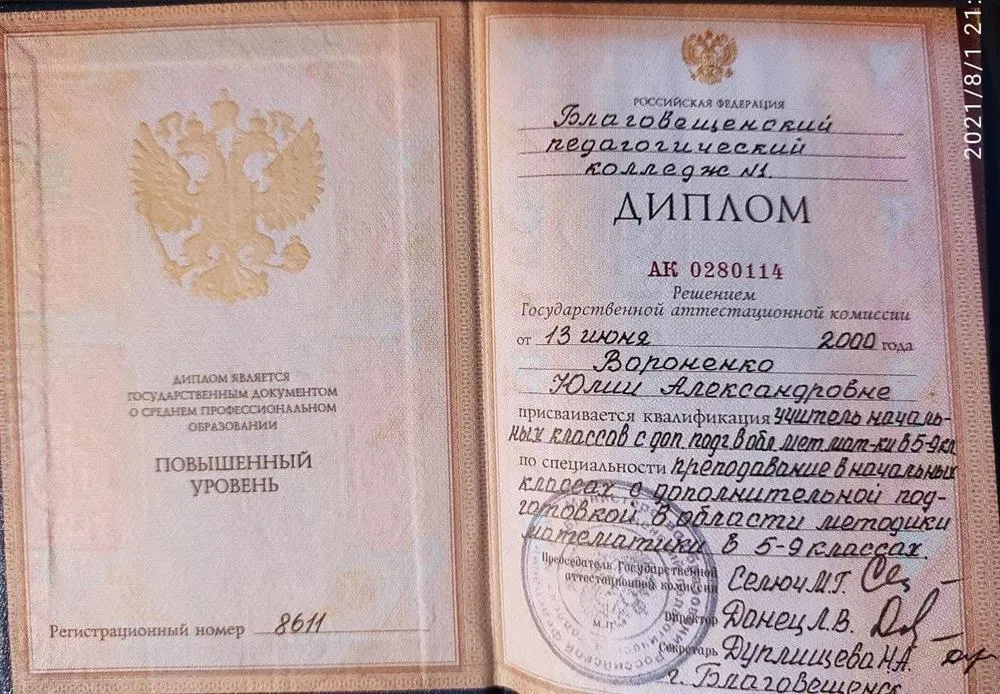 ДИПЛОМ ЯВЛЯЕТСЯ
ГОСУДАРСТВЕННЫМ ДОКУМЕНТОМ
О СРЕДНЕМ ПРОФЕССИОНАЛЬНОМ
ОБРАЗОВАНИИ
ПОВЫШЕННЫЙ
УРОВЕНЬ
Регистрационный номер 8611
РОССИЙСКАЯ ФЕДЕРАЦИЯ
Благовещенский
педагогический
колледж №1.
ДИПЛОМ
АК 0280114
Решением
Государственной аттестационной комиссии
от 13 июня 2000 года
Вороненко
Юлии Александровне
присваивается квалификация учитель началь-
ных классов с доп. подг в обл мет мат-ки в 5-9кл
по специальности преподавание в начальных
классах с дополнительной под-
готовкой в области методики
математики в 5-9 классах.
Председатель Государственной
аттестационной комиссии Селюч М.Г.
Директор Донец Л.В.
Секретарь Дуплищева Н.А.
г. Благовещенск
М.П.
2021/8/1 21: